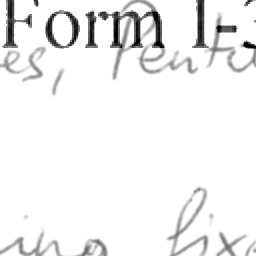 Form I-3
es, Pentu
ing fix